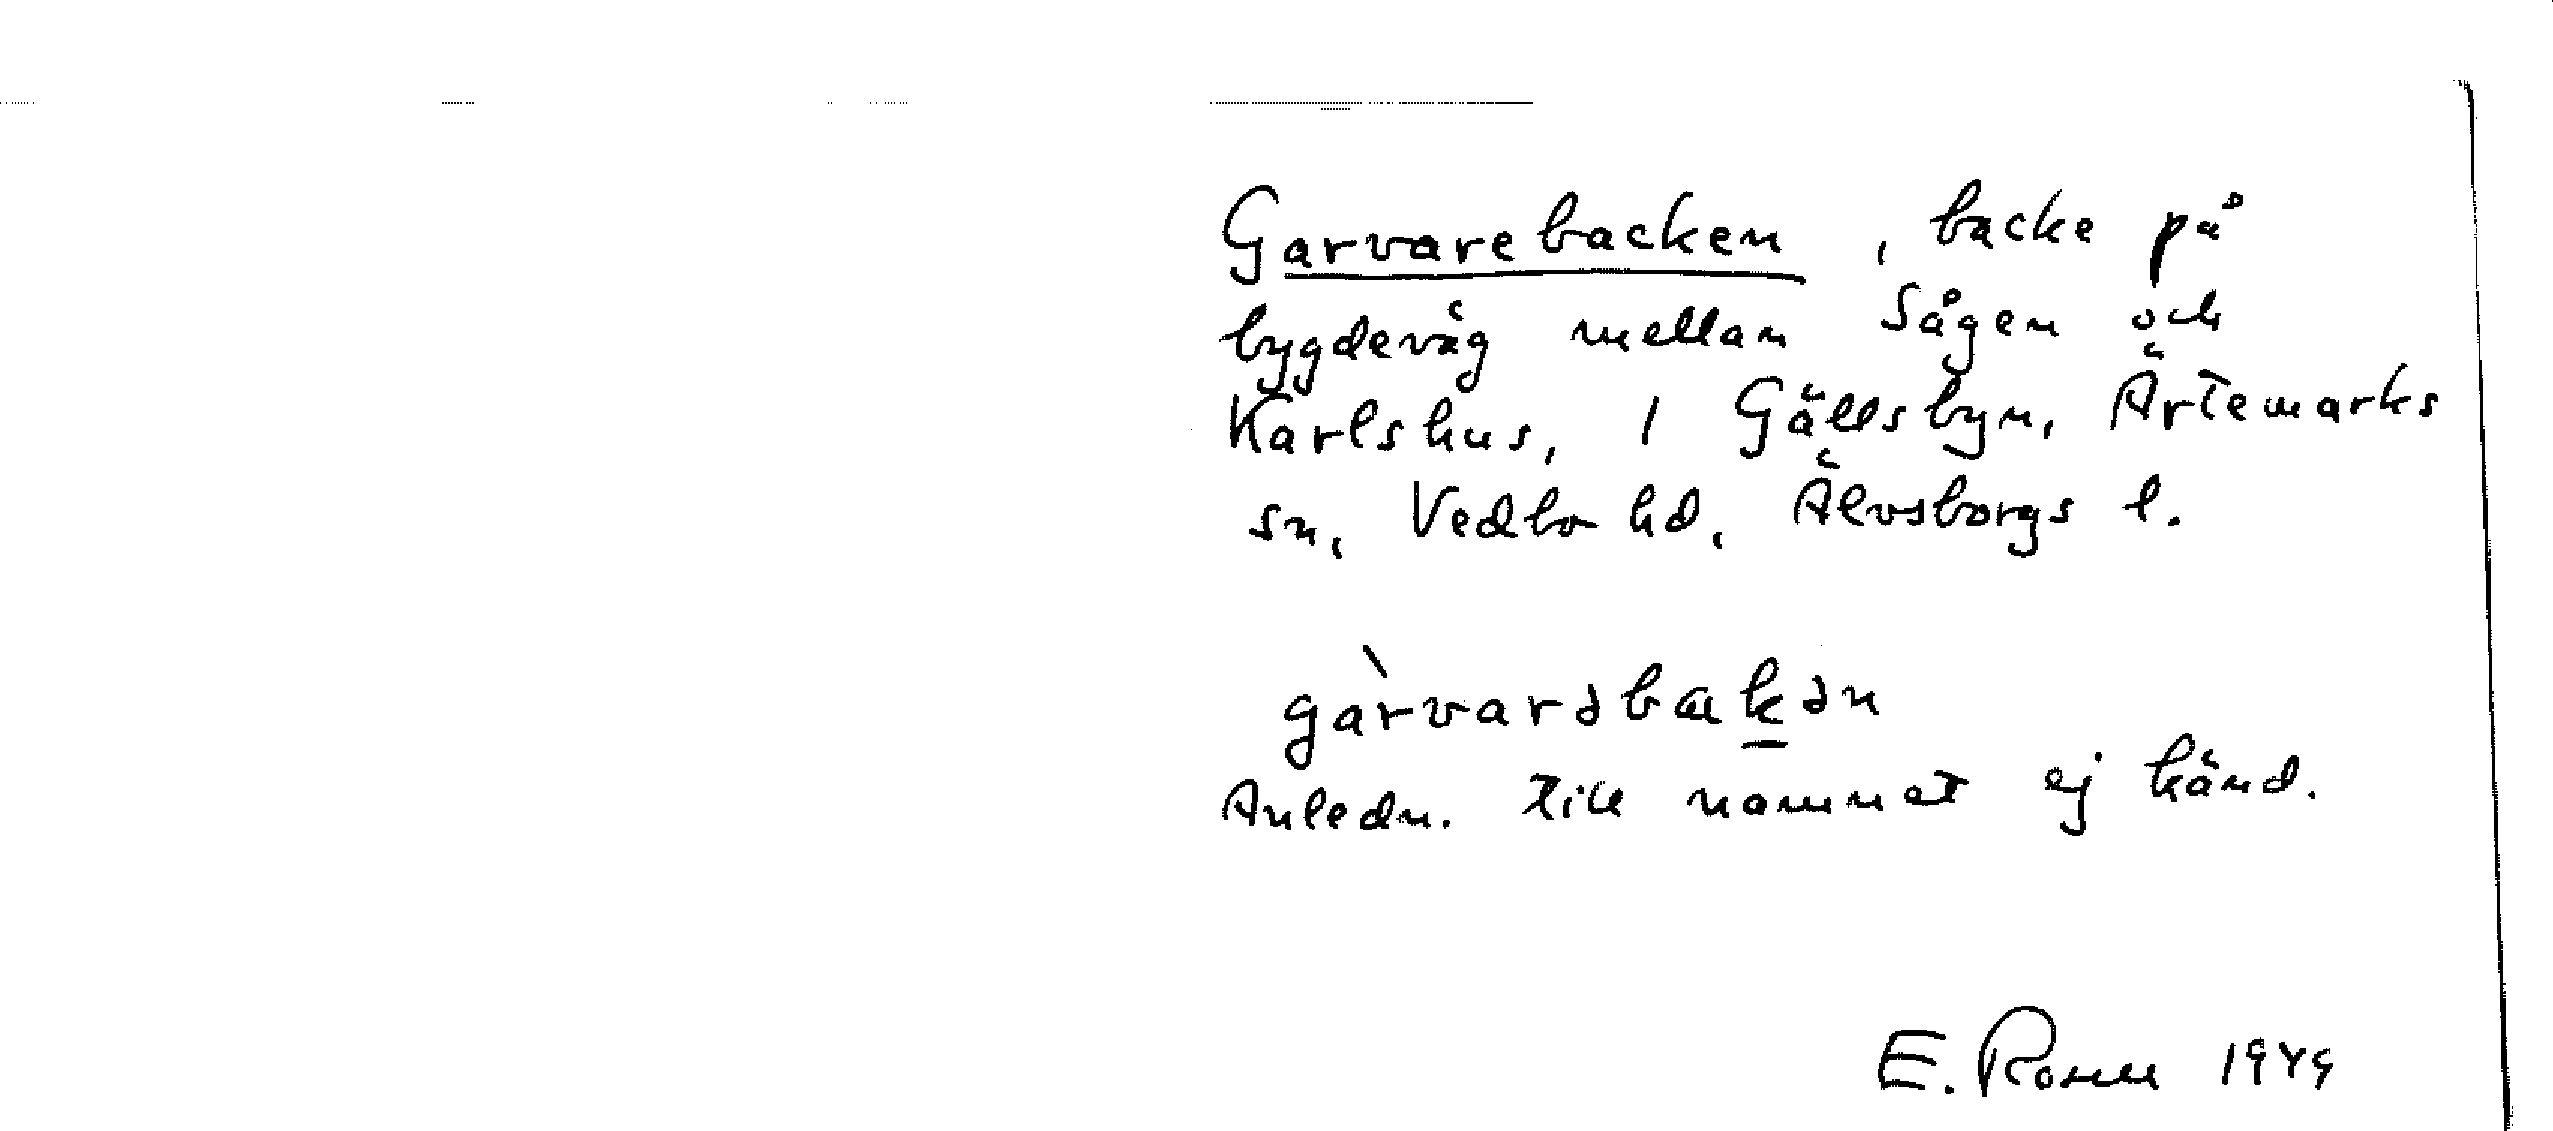 Garvarebacken, backe på
bygdeväg mellan Sågen och
Karlshus, i Gällsbyn, Ärtemarks
sn, Vedbo hd, Älvsborgs l.
gàrvarəbakən
Anledn. till namnet ej känd.
E. 1949